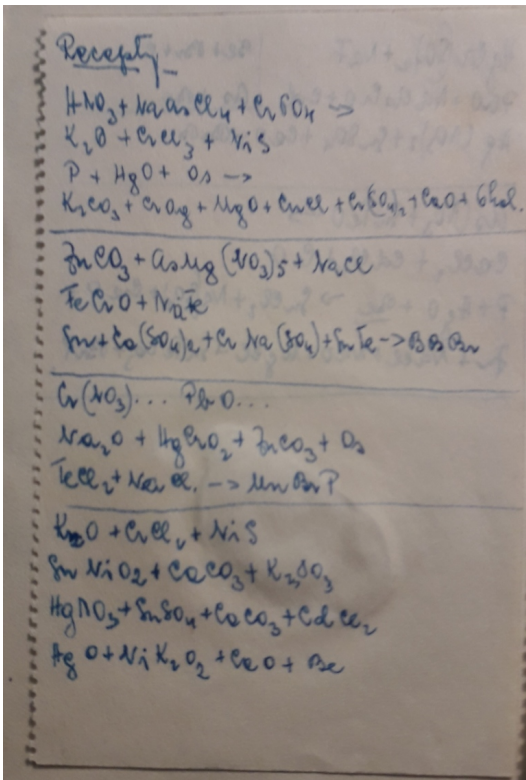 Recepty
HNO₃ + NaAsCl₄ + CrSO₄ →
K₂O + CrCl₃ + NiS
P + HgO + Os →
K₂CO₃ + CrAg + MgO + CuCl + Cr(SO₄)₂ + CaO +
ZnCO₃ + AsMg(NO₃)5 + NaCl
FeCrO +
Sn + Ca(SO₄)₂ + Cr Na(SO₄) + SnFe → BBBr
Cr(NO₃)... PbO...
Na₂O + HgCrO₂ + ZnCO₃ + Os
FeCl₂ + NaCl. → MnBrP
K₂O + CrCl₂ + NiS
Sn NiO₂ + CaCO₃ + K₂SO₃
HgNO₃ + SnSO₄ + CaCO₃ + CdCl₂
Ag O + Ni K₂O₂ + CaO + Be